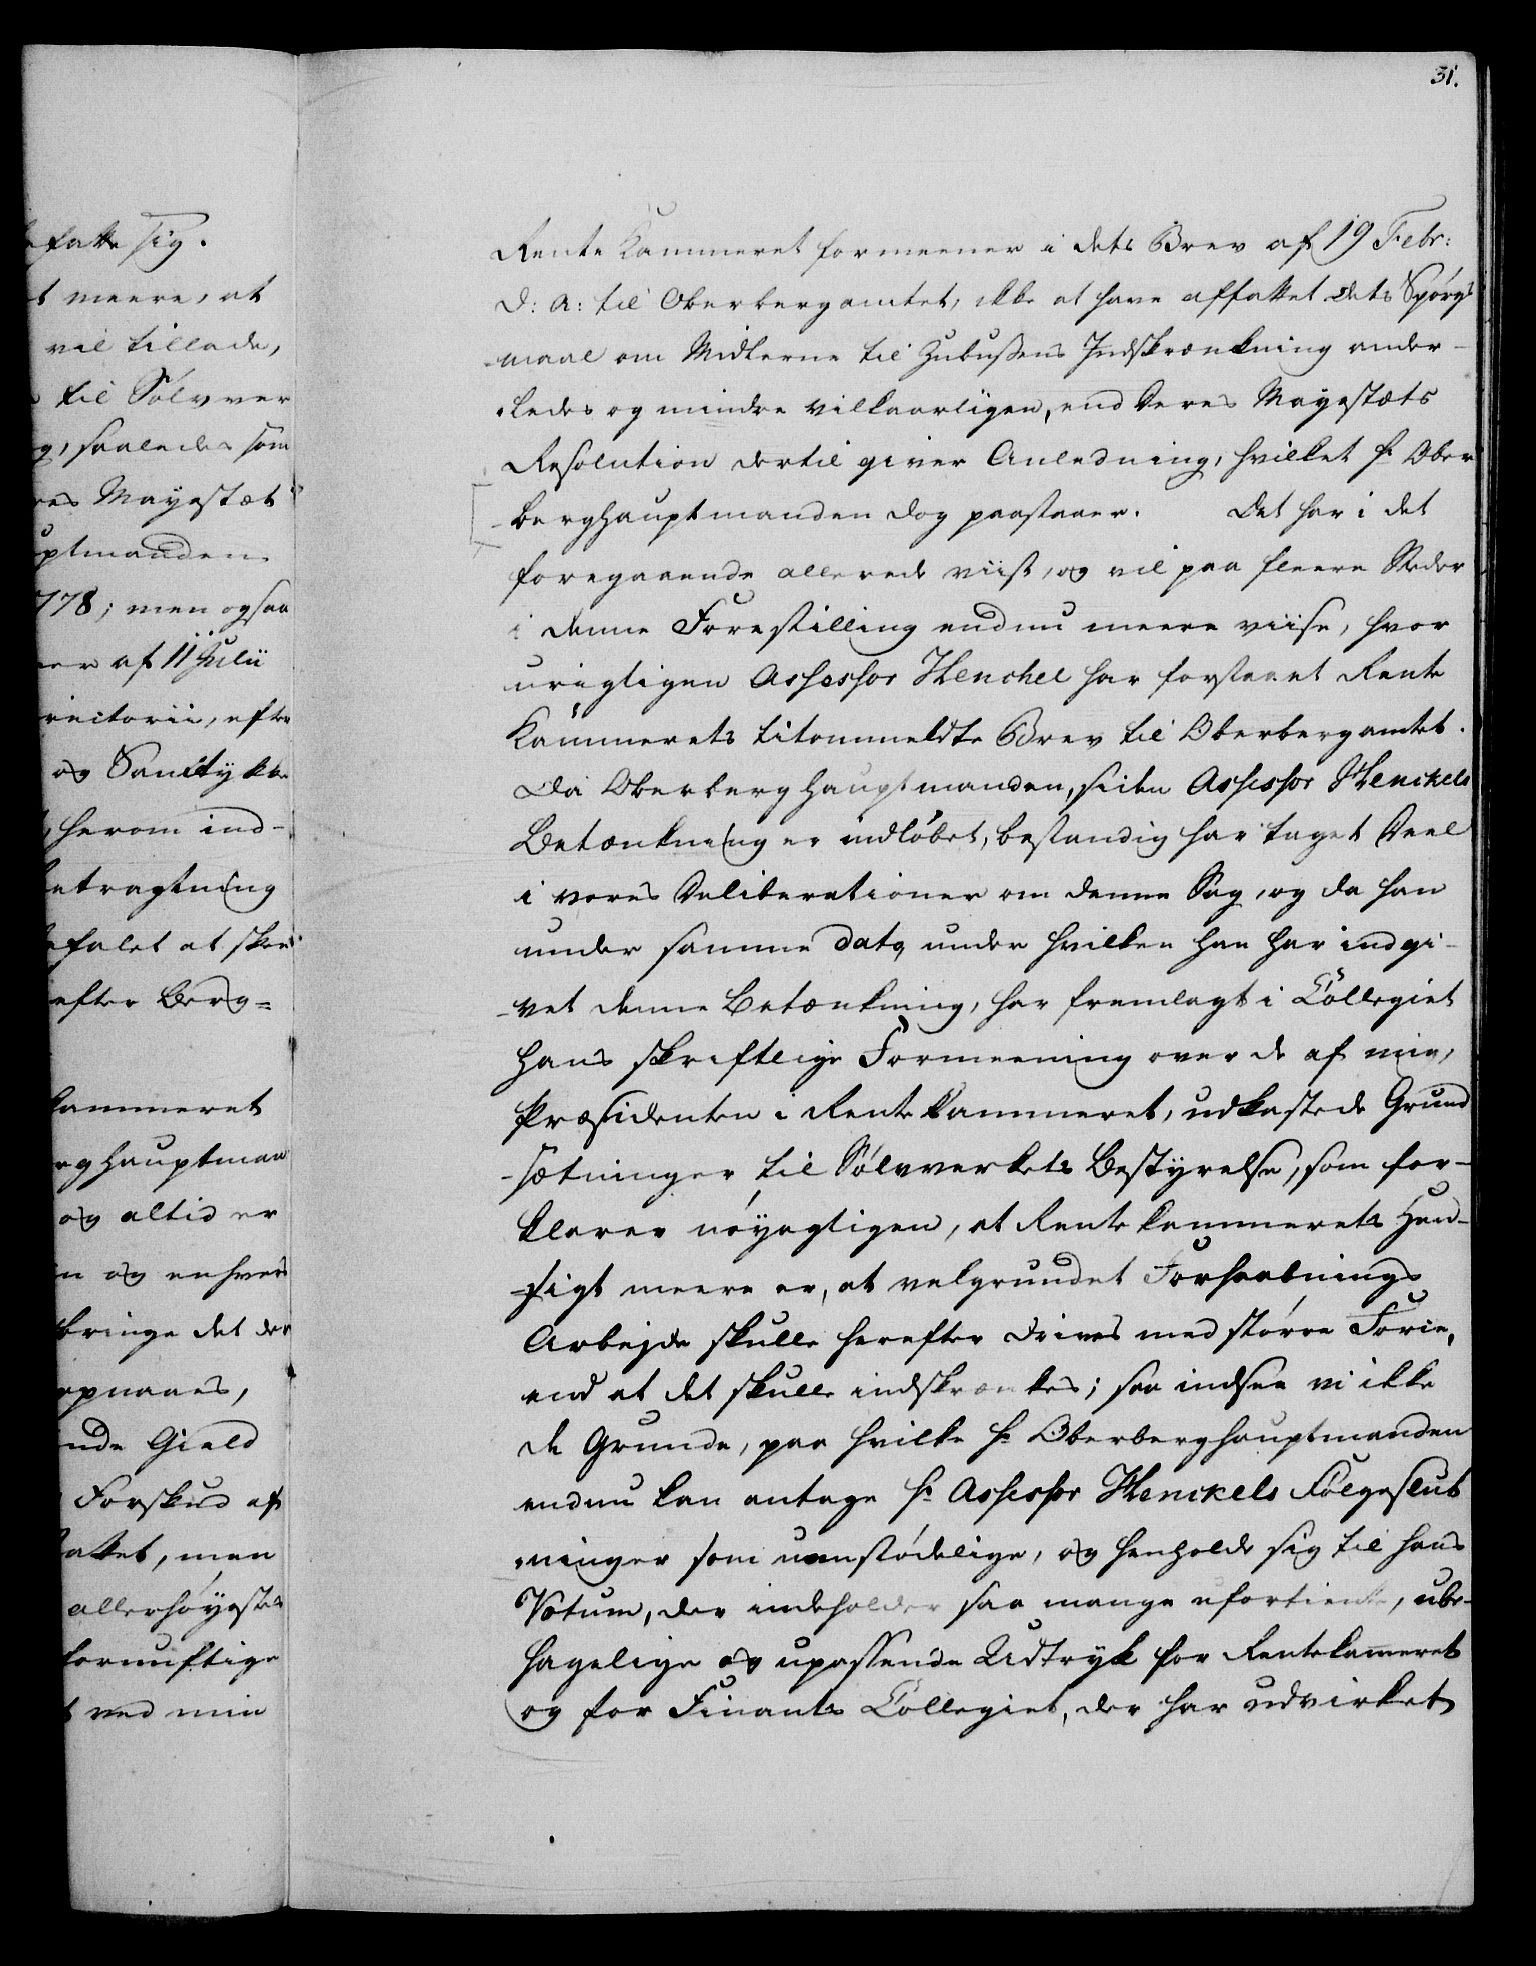 31.
efatte sig.
t meere, at
vil tillade,
til Sølvver
g, saaledes som
res Mayestæt
uptmanden
778; men ogsaa
er af 11 Julii
irectorii, efter
og Samtykke
herom ind-
etragtning
efalet at skee
efter Berg-
Kammeret
erghauptman
og altid er
n og enhver
bringe det der
opnaaes,
nde Gield
Forskud af
attet, men
allerhøyeste
fornuftige
t ved min
Rente Kammeret formeener i dets Brev af 19 Febr:
d: A: til Oberbergamtet, ikke at have affattet dets Spørgs
-maal om Midlerne til Zubussens Indskrænkning ander-
-ledes og mindre vilkaarligen, end Deres Mayestæts
Resolution dertil giver Anledning, hvilket Hr Ober
-berghauptmanden dog paastaaer. Det har i det
foregaaende allerede viist, og vil paa fleere Steder
i denne Forestilling endnu meere viise, hvor
urigtigen Assessor Henchel har forstaaet Rente
Kammerets titommeldte Brev til Oberbergamtet.
Da Oberberghauptmanden, siden Assessor Henckels
Betænkning er indløbet, bestandig har taget Deel
i vores Deliberationer om denne Sag, og da han
under samme dato, under hvilken han har indgi-
-vet denne Betænkning, har fremlagt i Collegiet
hans skriftlige Formeening over de af mig,
Præsidenten i Rentekammeret, udkastede Grund
-sætninger til Sølvverkets Bestyrelse, som for-
klarer nøyagtigen, at Rentekammerets Hen-
-sigt meere er, at velgrundet Forhaabnings
Arbejde skulle herefter drives med større Force,
end at det skulle indskrænkes; saa indsee vi ikke
de Grunde, paa hvilke Hr Oberberghauptmanden
endnu kan antage Hr Assessor Henckels Følgeslut
-ninger som uomstødelige, og henholde sig til hans
Votum, der indeholder saa mange ufortiente, ube-
hagelige og upassende Udtryk for Rentekameret
og for Finants Collegiet, der har udvirket